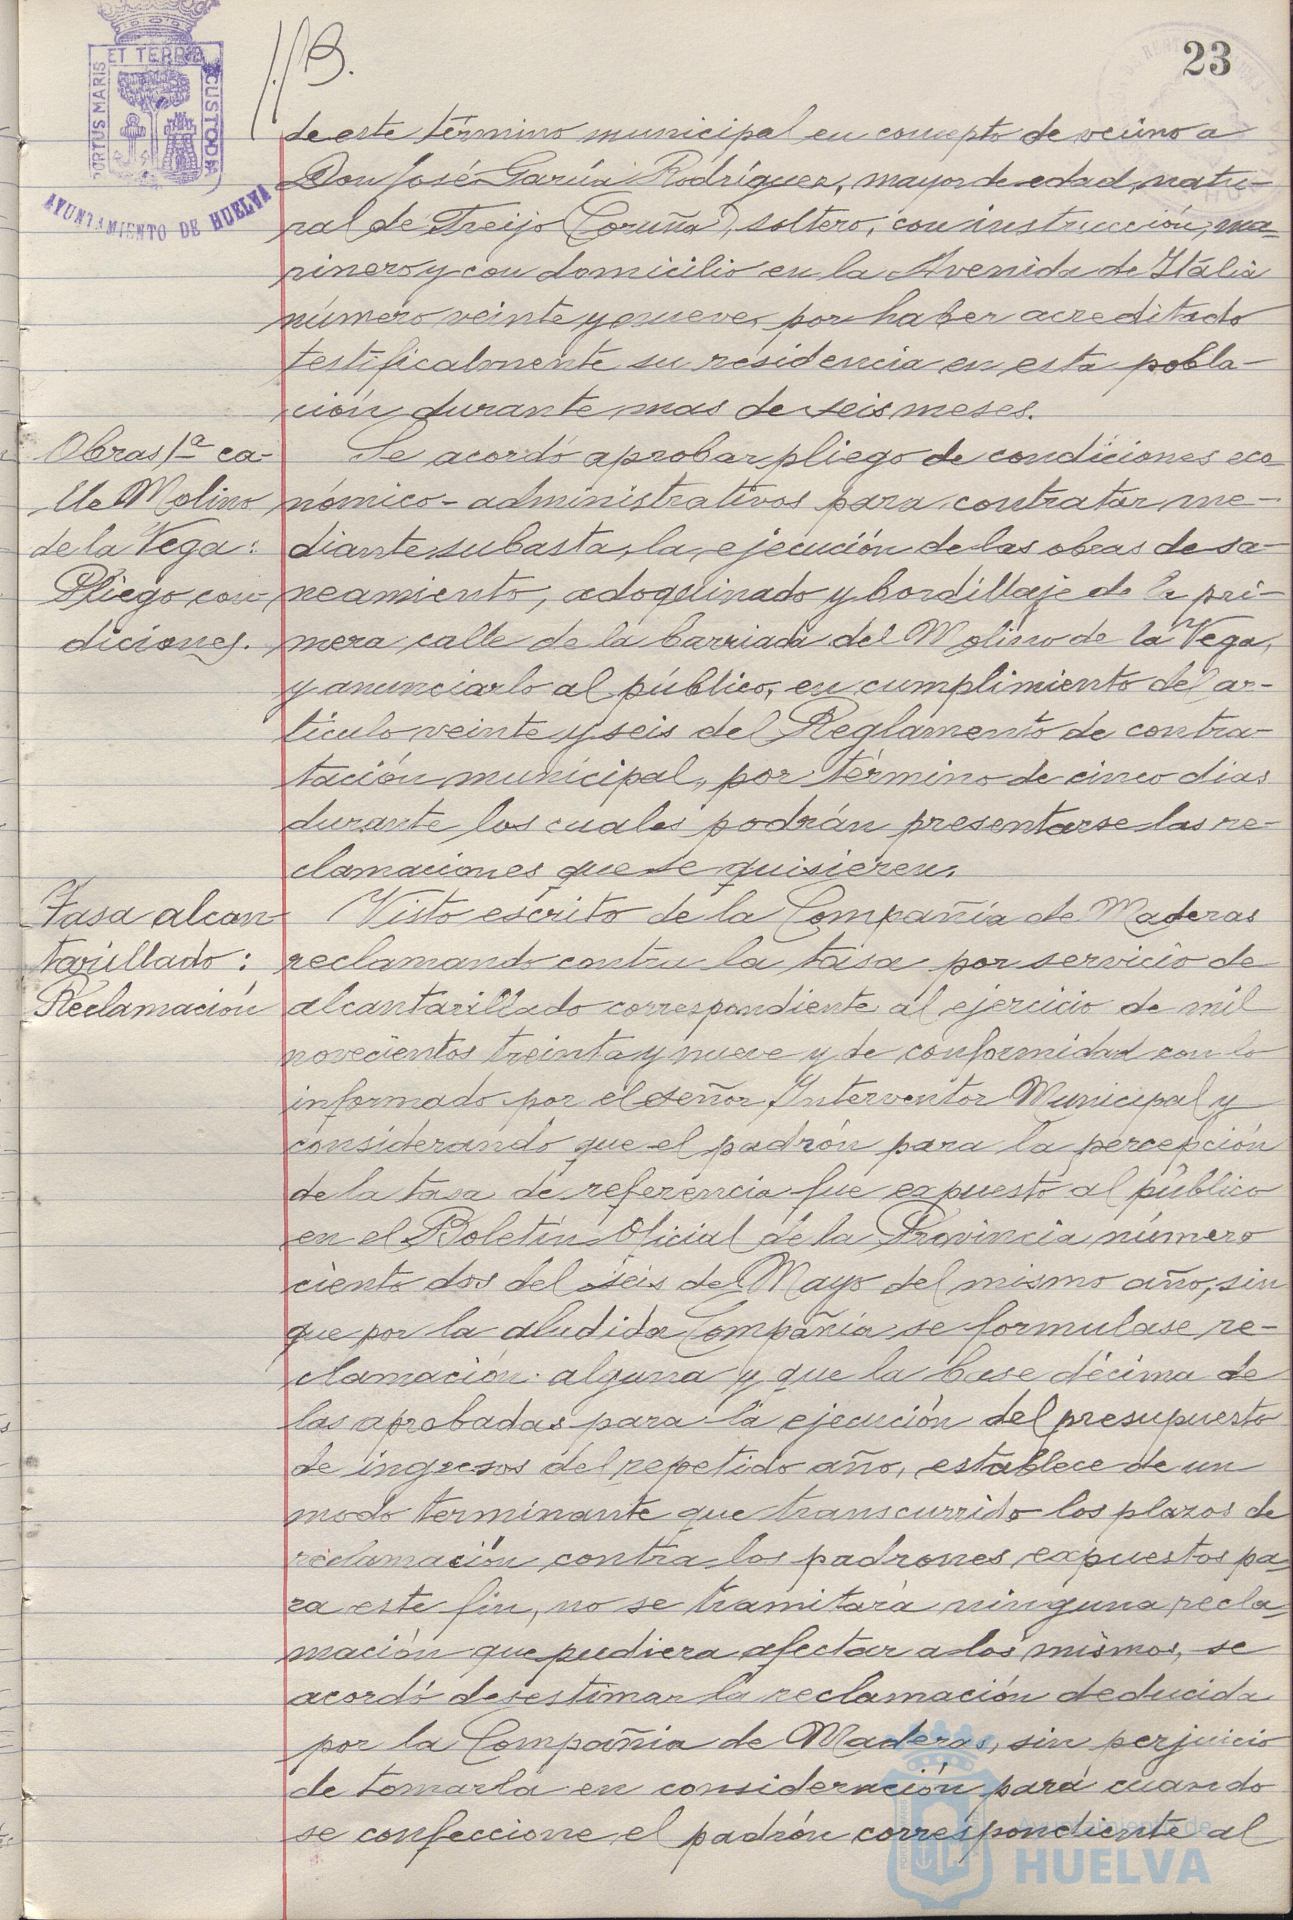 23
PORTUS MARIS ET TERRÆ CUSTODIA
AYUNTAMIENTO DE HUELVA
de este término municipal en concepto de vecino a
Don José García Rodríguez, mayor de edad, natu-
ral de Freijo (Coruña), soltero, con instrucción, ma-
rinero y con domicilio en la Avenida de Italia
número veinte y nueve, por haber acreditado
testificalmente su residencia en esta pobla-
ción durante mas de seis meses.
Obras 1ª ca-
lle Molino
de la Vega:
Pliego con-
diciones.
Se acordó aprobar pliego de condiciones eco-
nómico-administrativas para contratar me-
diante subasta, la ejecución de las obras de sa-
neamiento, adoquinado y bordillaje de la pri-
mera calle de la barriada del Molino de la Vega,
y anunciarlo al público, en cumplimiento del ar-
tículo veinte y seis del Reglamento de contra-
tación municipal, por término de cinco dias
durante los cuales podrán presentarse las re-
clamaciones que se quisieren.
Tasa alcan
tarillado:
Reclamación
Visto escrito de la Compañía de Maderas
reclamando contra la tasa por servicio de
alcantarillado correspondiente al ejercicio de mil
novecientos treinta y nueve y de conformidad con lo
informado por el señor Interventor Municipal y
considerando que el padrón para la percepción
de la tasa de referencia fue expuesto al público
en el Boletín Oficial de la Provincia número
ciento dos del seis de Mayo del mismo año, sin
que por la aludida Compañía se formulase re-
clamación alguna y que la base décima de
las aprobadas para la ejecución del presupuesto
de ingresos del repetido año, establece de un
modo terminante que transcurrido los plazos de
reclamación contra los padrones expuestos pa-
ra este fin, no se tramitará ninguna recla-
mación que pudiera afectar a los mismos, se
acordó desestimar la reclamación deducida
por la Compañía de Maderas, sin perjuicio
de tomarla en consideración para cuando
se confeccione el padrón correspondiente al
Ayuntamiento de
HUELVA